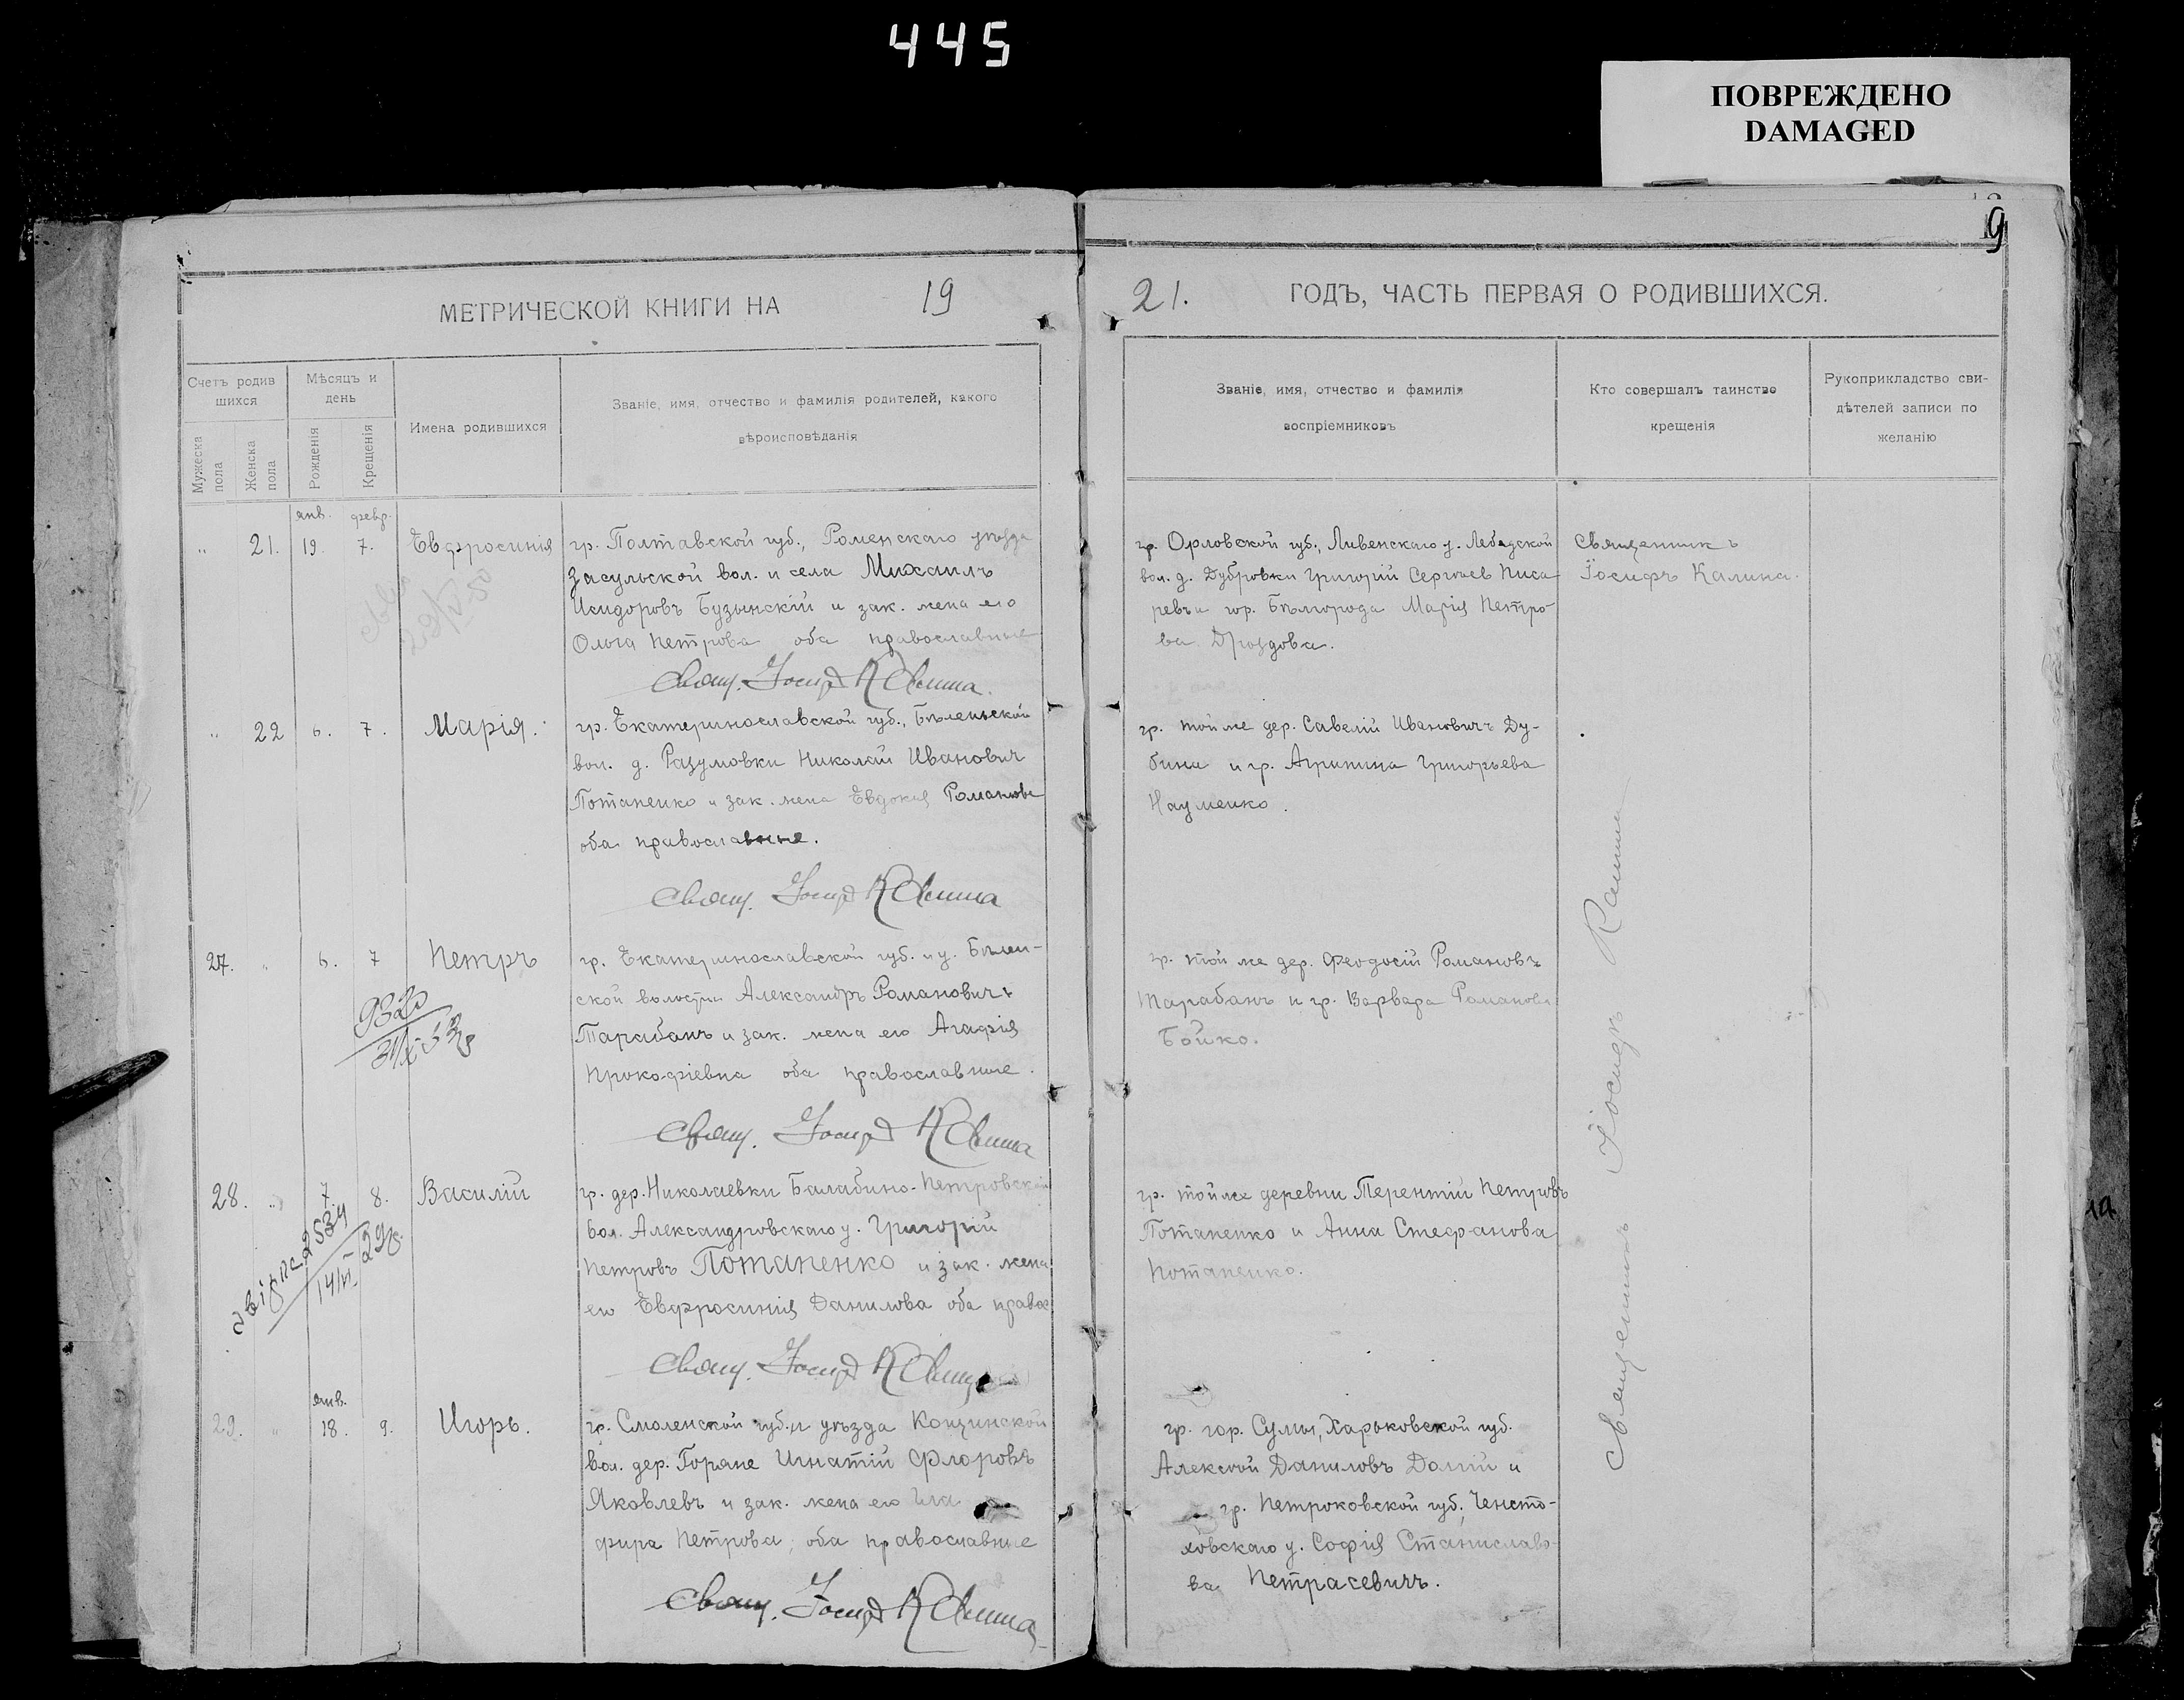 445
ПОВРЕЖДЕНО
DAMAGED
9
МЕТРИЧЕСКОЙ КНИГИ НА 19
21. ГОДЪ, ЧАСТЬ ПЕРВАЯ О РОДИВШИХСЯ.
Счетъ родив
шихся
Мужеска пола
Женска пола
Мѣсяцъ и
день
Рожденія
Крещенія
Имена родившихся
Званіе, имя, отчество и фамилія родителей, какого
вѣроисповѣданія
Званіе, имя, отчество и фамилія
воспріемниковъ
Кто совершалъ таинство
крещенія
Рукоприкладство сви-
дѣтелей записи по
желанію
янв. февр.
" 21. 19. 7. Евфросинія
гр. Полтавской губ., Роменскаго уѣзда
Засульской вол. и села Михаилъ
Исидоровъ Бузынскій и зак. жена его
Ольга Петрова оба православные
Свящ. Іосифъ Калина.
гр. Орловской губ., Ливенскаго у. Лебедской
вол. д. Дубровки Григорій Сергѣев Писа
ревъ и гор. Бѣлгорода Марія Петро-
ва Дроздова.
Священникъ
Іосифъ Калина.
" 22 6. 7. Марія.
гр. Екатеринославской губ., Бѣленьской
вол. д. Разумовки Николай Иванович
Потапенко и зак. жена Евдокія Романова
оба православные.
Свящ. Іосифъ Калина
гр. той же дер. Савелій Ивановичъ Ду-
бина и гр. Агрипина Григорьева
Науменко.
27. " 6. 7 Петръ
гр. Екатеринославской губ. и у. Бѣлен-
ской волости Александръ Романовичъ
Тарабанъ и зак. жена его Агафія
Прокофіевна оба православные.
Свящ. Іосифъ Калина
гр. той же дер. Феодосій Романовъ
Тарабанъ и гр. Варвара Романова
Бойко.
28. " 7. 8. Василій
гр. дер. Николаевки Балабино-Петровской
вол. Александровскаго у. Григорій
Петровъ Потапенко и зак. жена
его Евфросинія Данилова оба правос
Свящ. Іосифъ Калина
гр. той же деревни Терентій Петровъ
Потапенко и Анна Стефанова
Потапенко.
янв.
29. " 18. 9. Игорь.
гр. Смоленской губ. и уѣзда Кощинской
вол. дер. Горяне Игнатій Флоровъ
Яковлевъ и зак. жена его
фира Петрова, оба православные
Свящ. Іосифъ Калина
гр. гор. Сумы, Харьковской губ.
Алексѣй Даниловъ Долгій и
гр. Петроковской губ., Ченсто-
ховскаго у. Софія Станиславо-
ва Петрасевичъ.
Священникъ Іосифъ Калина